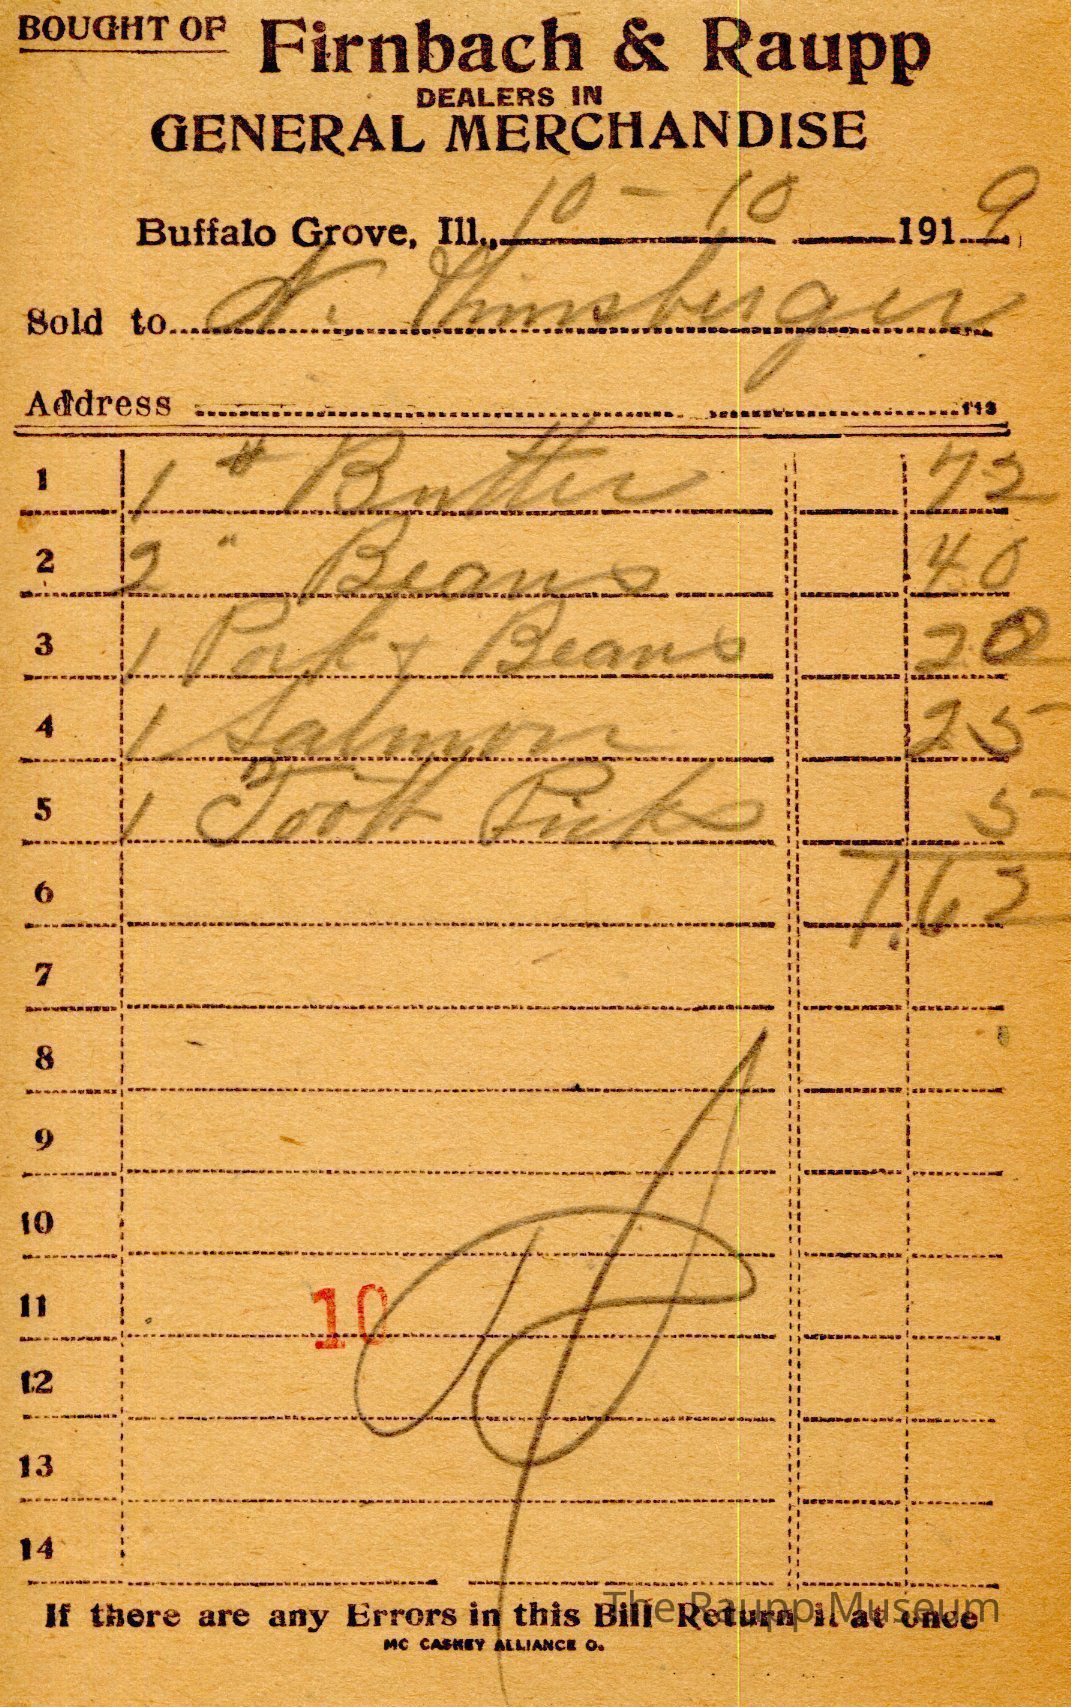 BOUGHT OF Firnbach & Raupp
DEALERS IN
GENERAL MERCHANDISE
Buffalo Grove, Ill., 10-10 1919
Sold to N.
Address 113
1 1 # Butter 72
2 2 " Beans 40
3 1 Pork & Beans 20
4 1 Salmon 25
5 1 Tooth Picks 5
6 1.62
7
8
9
10
11 10
12
13
14
If there are any Errors in this Bill Return it at once
The Raupp Museum
MC CASKEY ALLIANCE O.